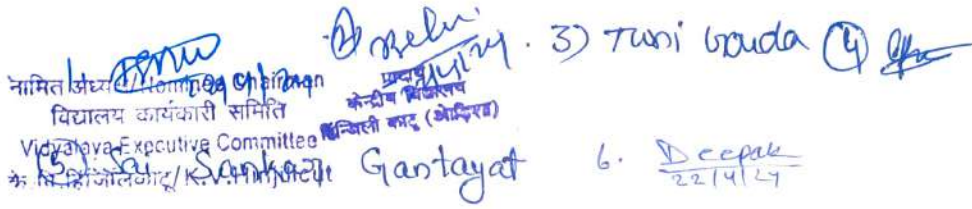 3) Tuni Gouda (4)
नामित अध्यक्ष/Nominee Chairman
विद्यालय कार्यकारी समिति
Vidyalaya Executive Committee
के. वि. हिंजिलिकाटु/K.V. Hinjilicut
प्राचार्य
केन्द्रीय विद्यालय
हिन्जिली काटु (ओड़िशा)
(5) Sai Sankar Gantayat
6. Deepak
22/4/24